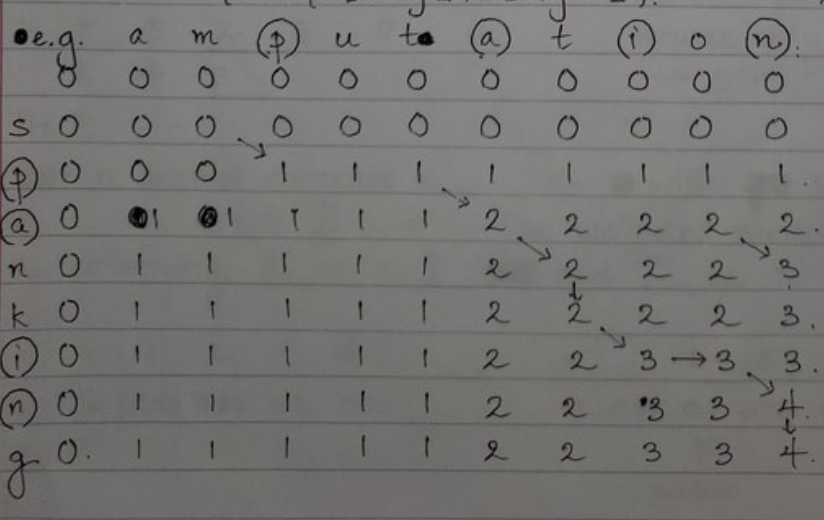 e.g. a m p u t a t i o n.
0 0 0 0 0 0 0 0 0 0 0
s 0 0 0 0 0 0 0 0 0 0 0
p 0 0 0 1 1 1 1 1 1 1 1.
a 0 1 1 1 1 1 2 2 2 2 2.
n 0 1 1 1 1 1 2 2 2 2 3
k 0 1 1 1 1 1 2 2 2 2 3.
i 0 1 1 1 1 1 2 2 3 → 3 3.
n 0 1 1 1 1 1 2 2 3 3 4.
g 0. 1 1 1 1 1 2 2 3 3 4.